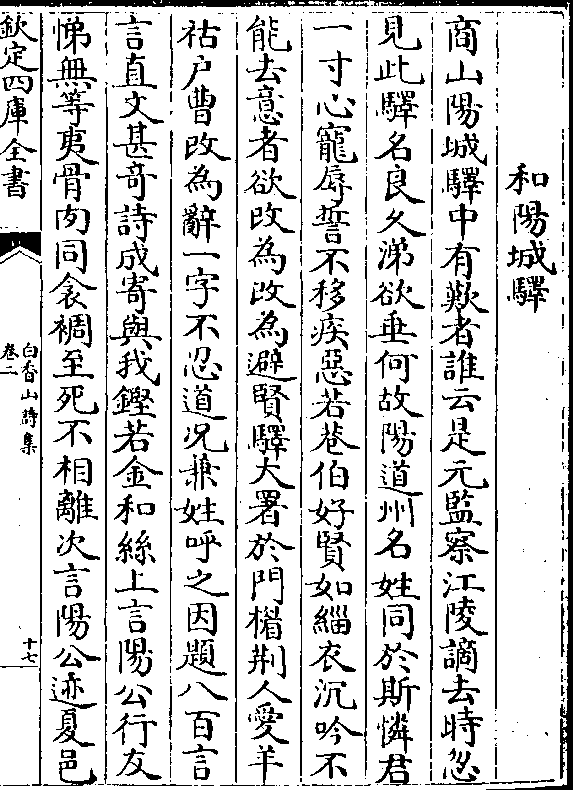 和陽城驛
商山陽城驛中有歎者誰云是元監察江陵謫去時忽
見此驛名良久涕欲垂何故陽道州名姓同於斯憐君
一寸心寵辱誓不移疾惡若巷伯好賢如緇衣沉吟不
能去意者欲改為改為避賢驛大署於門楣荆人愛羊
祜户曹改為辭一字不忍道况兼姓呼之因題八百言
言直文甚竒詩成寄與我鏗若金和絲上言陽公行友
悌無等夷骨肉同衾裯至死不相離次言陽公迹夏邑
欽定四庫全書
白香山詩集
卷二
十七